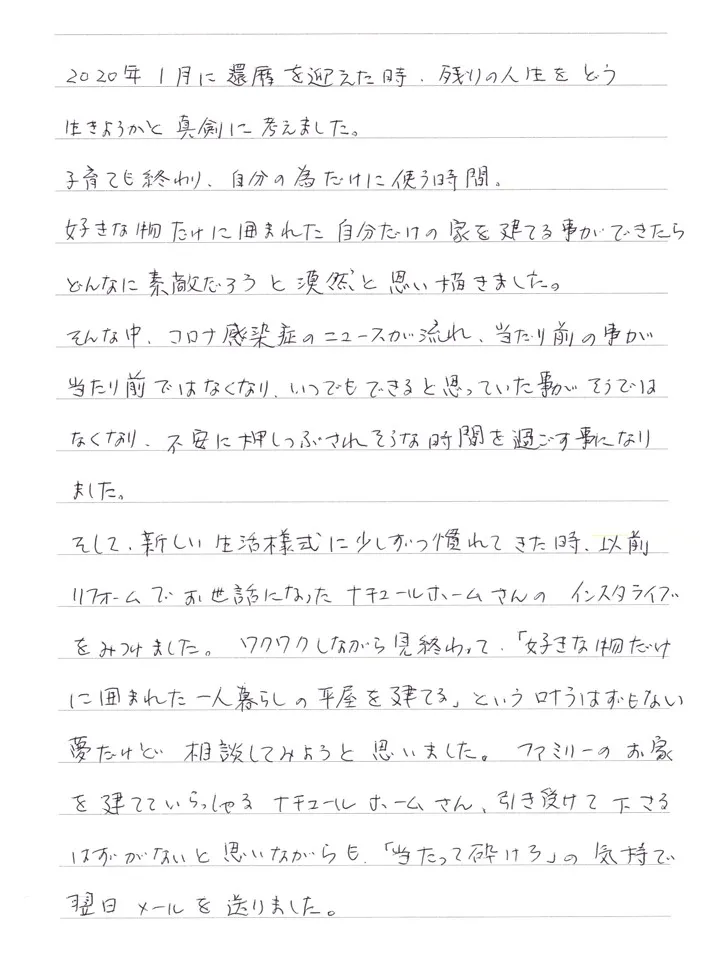 2020年1月に還暦を迎えた時、残りの人生をどう
生きようかと真剣に考えました。
子育ても終わり、自分の為だけに使う時間。
好きな物だけに囲まれた自分だけの家を建てる事ができたら
どんなに素敵だろうと漠然と思い描きました。
そんな中、コロナ感染症のニュースが流れ、当たり前の事が
当たり前ではなくなり、いつでもできると思っていた事がそうでは
なくなり、不安に押しつぶされそうな時間を過ごす事になり
ました。
そして、新しい生活様式に少しずつ慣れてきた時、以前
リフォームでお世話になったナチュールホームさんのインスタライブ
をみつけました。ワクワクしながら見終わって、「好きな物だけ
に囲まれた一人暮らしの平屋を建てる」という叶うはずもない
夢だけど相談してみようと思いました。ファミリーのお家
を建てていらっしゃるナチュールホームさん、引き受けて下さる
はずがないと思いながらも、「当たって砕けろ」の気持で
翌日メールを送りました。